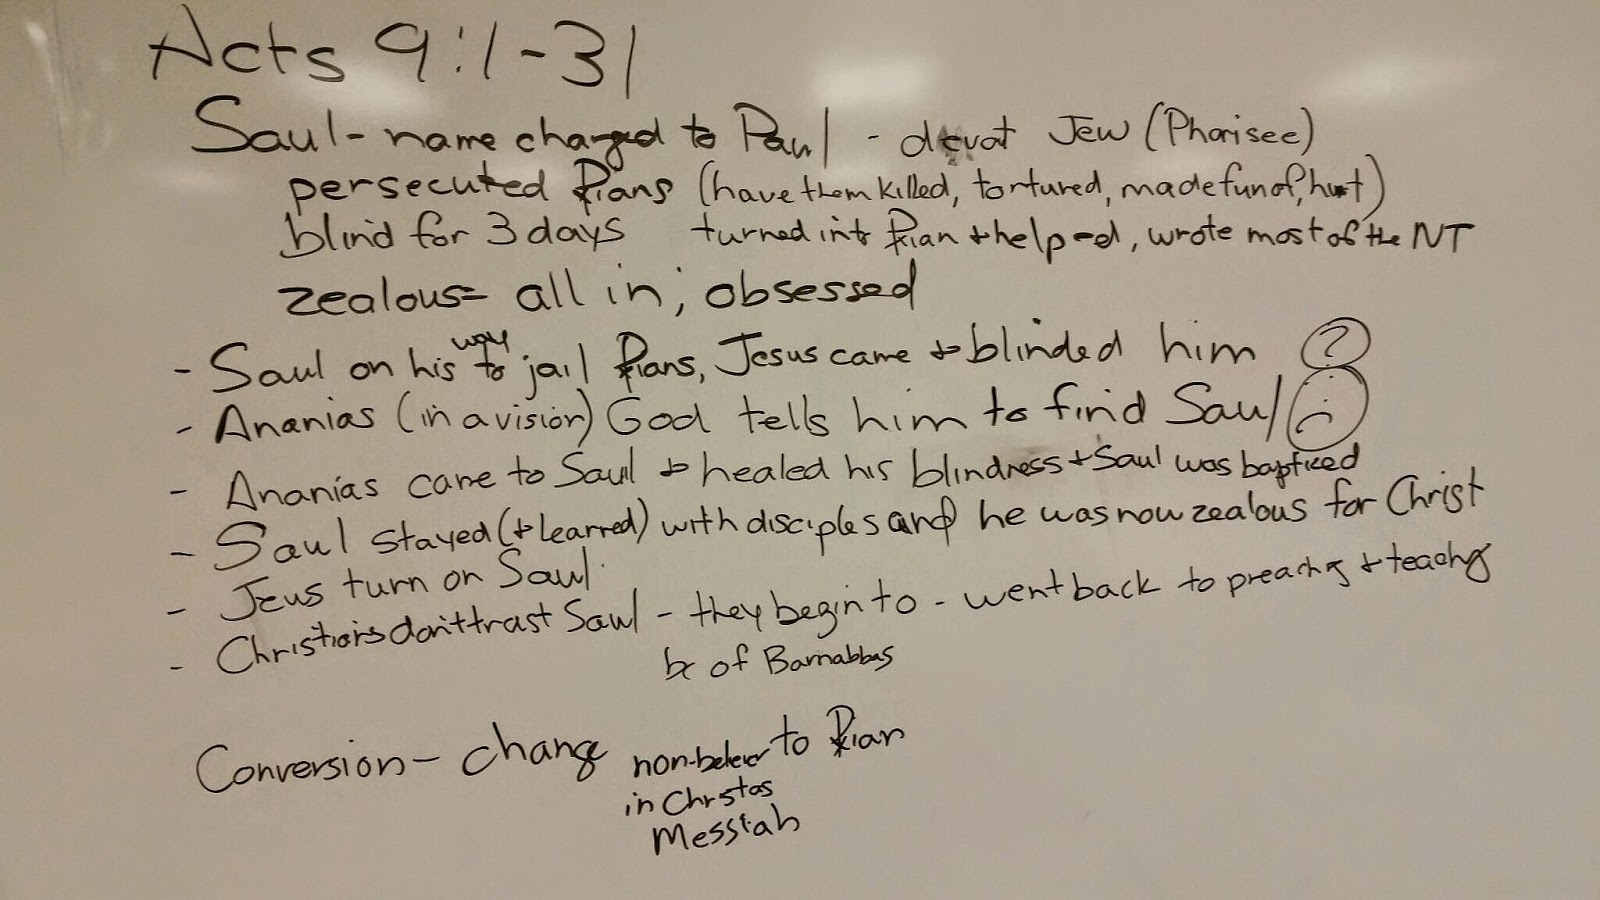 Acts 9:1-31
Saul - name changed to Paul - devout Jew (Pharisee)
persecuted ☧ians (have them killed, tortured, made fun of, hurt)
blind for 3 days turned into ☧ian + helped, wrote most of the NT
zealous = all in; obsessed
- Saul on his way to jail ☧ians, Jesus came + blinded him ?
- Ananias (in a vision) God tells him to find Saul
- Ananias came to Saul + healed his blindness + Saul was baptized
- Saul stayed (+ learned) with disciples and he was now zealous for Christ
- Jews turn on Saul.
- Christians don't trust Saul - they begin to - went back to preaching + teaching
bc of Barnabbas
Conversion - change non-believer to ☧ian
in Christ as
Messiah